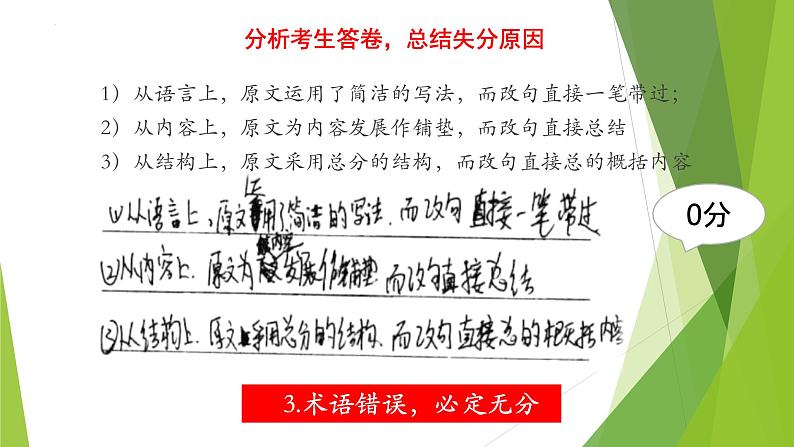 分析考生答卷，总结失分原因
1）从语言上，原文运用了简洁的写法，而改句直接一笔带过；
2）从内容上，原文为内容发展作铺垫，而改句直接总结
3）从结构上，原文采用总分的结构，而改句直接总的概括内容
0分
①从语言上，原文运用了简洁的写法，而改句直接一笔带过
②从内容上，原文为后内容发展作铺垫 而改句直接总结
③从结构上，原文采用总分的结构，而改句直接总的概括内容
3.术语错误，必定无分